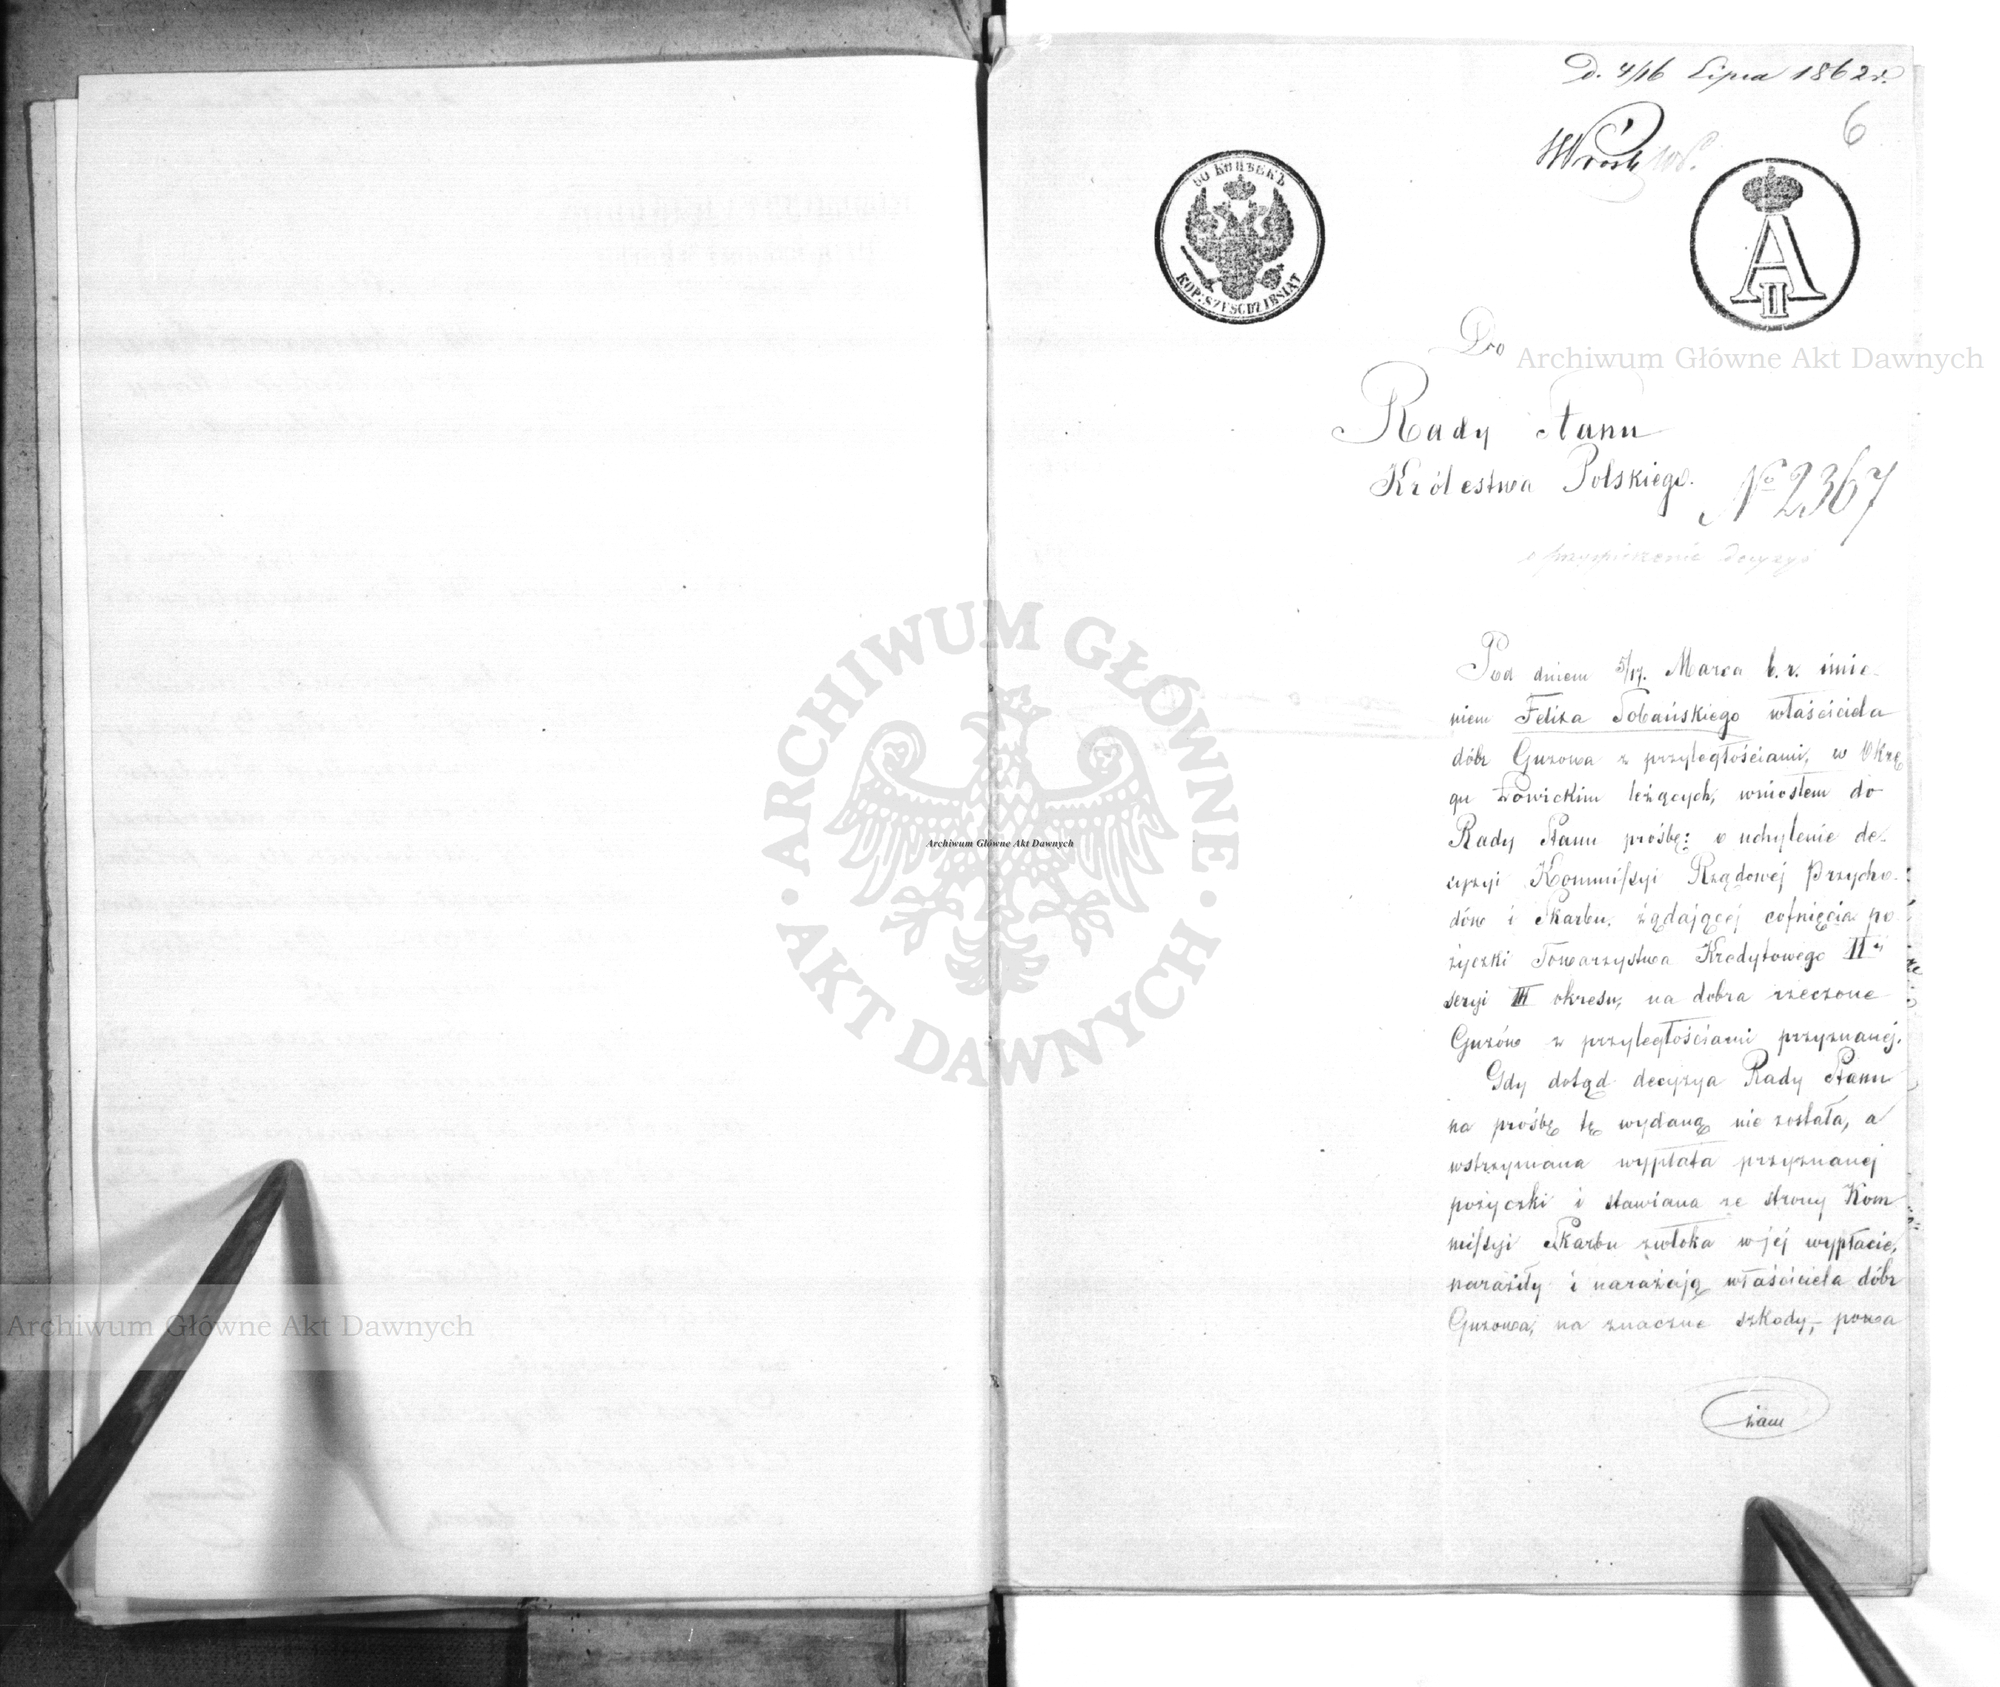 D. 4/16 Lipca 1862 r.
6
60 КОПѢЕКЪ
KOP. SZEŚĆDZIESIĄT
A II
Do
Rady Stanu
Królestwa Polskiego.
No 2367
o przyspieszenie decyzyi
Pod dniem 5/17. Marca b. r. imie-
niem Felixa Sobańskiego właściciela
dóbr Guzowa z przyległościami, w Okrę
gu Łowickim leżących, wniosłem do
Rady Stanu prośbę: o uchylenie de-
cyzyi Kommissyi Rządowej Przycho-
dów i Skarbu, żądającej cofnięcia po-
życzki Towarzystwa Kredytowego IIej
seryi III okresu, na dobra rzeczone
Guzów z przyległościami przyznanej.
Gdy dotąd decyzya Rady Stanu
na prośbę tę wydaną nie została, a
wstrzymana wypłata przyznanej
pożyczki i stawiana ze strony Kom
missyi Skarbu zwłoka w jej wypłacie,
naraziły i narażają właściciela dóbr
Guzowa, na znaczne szkody, – pona
żam
Archiwum Główne Akt Dawnych
ARCHIWUM GŁÓWNE · AKT DAWNYCH ·
Archiwum Główne Akt Dawnych
Archiwum Główne Akt Dawnych